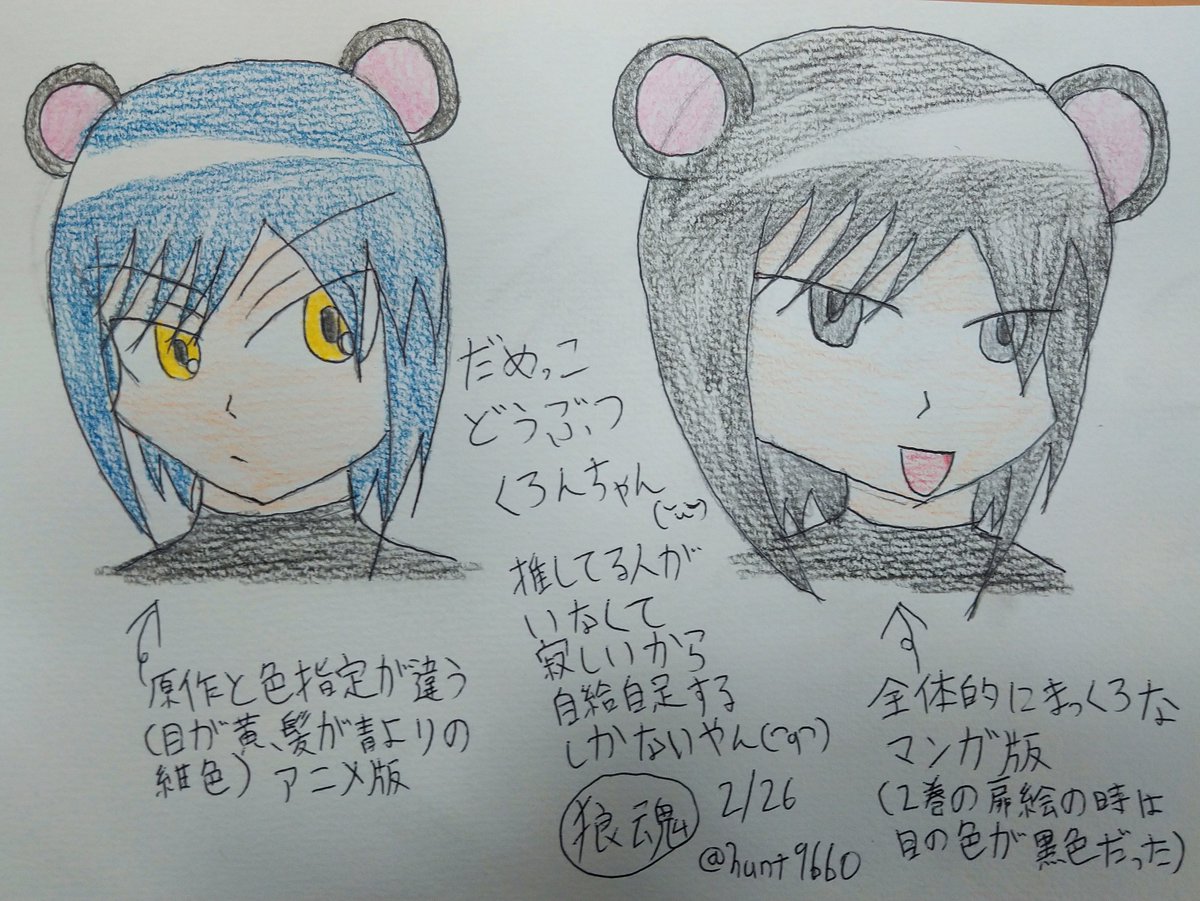 だめっこ
どうぶつ
くろんちゃん
推してる人が
いなくて
寂しいから
自給自足する
しかないやん
狼魂
2/26
@hunt9660
原作と色指定が違う
(目が黄、髪が青よりの
紺色) アニメ版
全体的にまっくろな
マンガ版
(2巻の扉絵の時は
目の色が黒色だった)